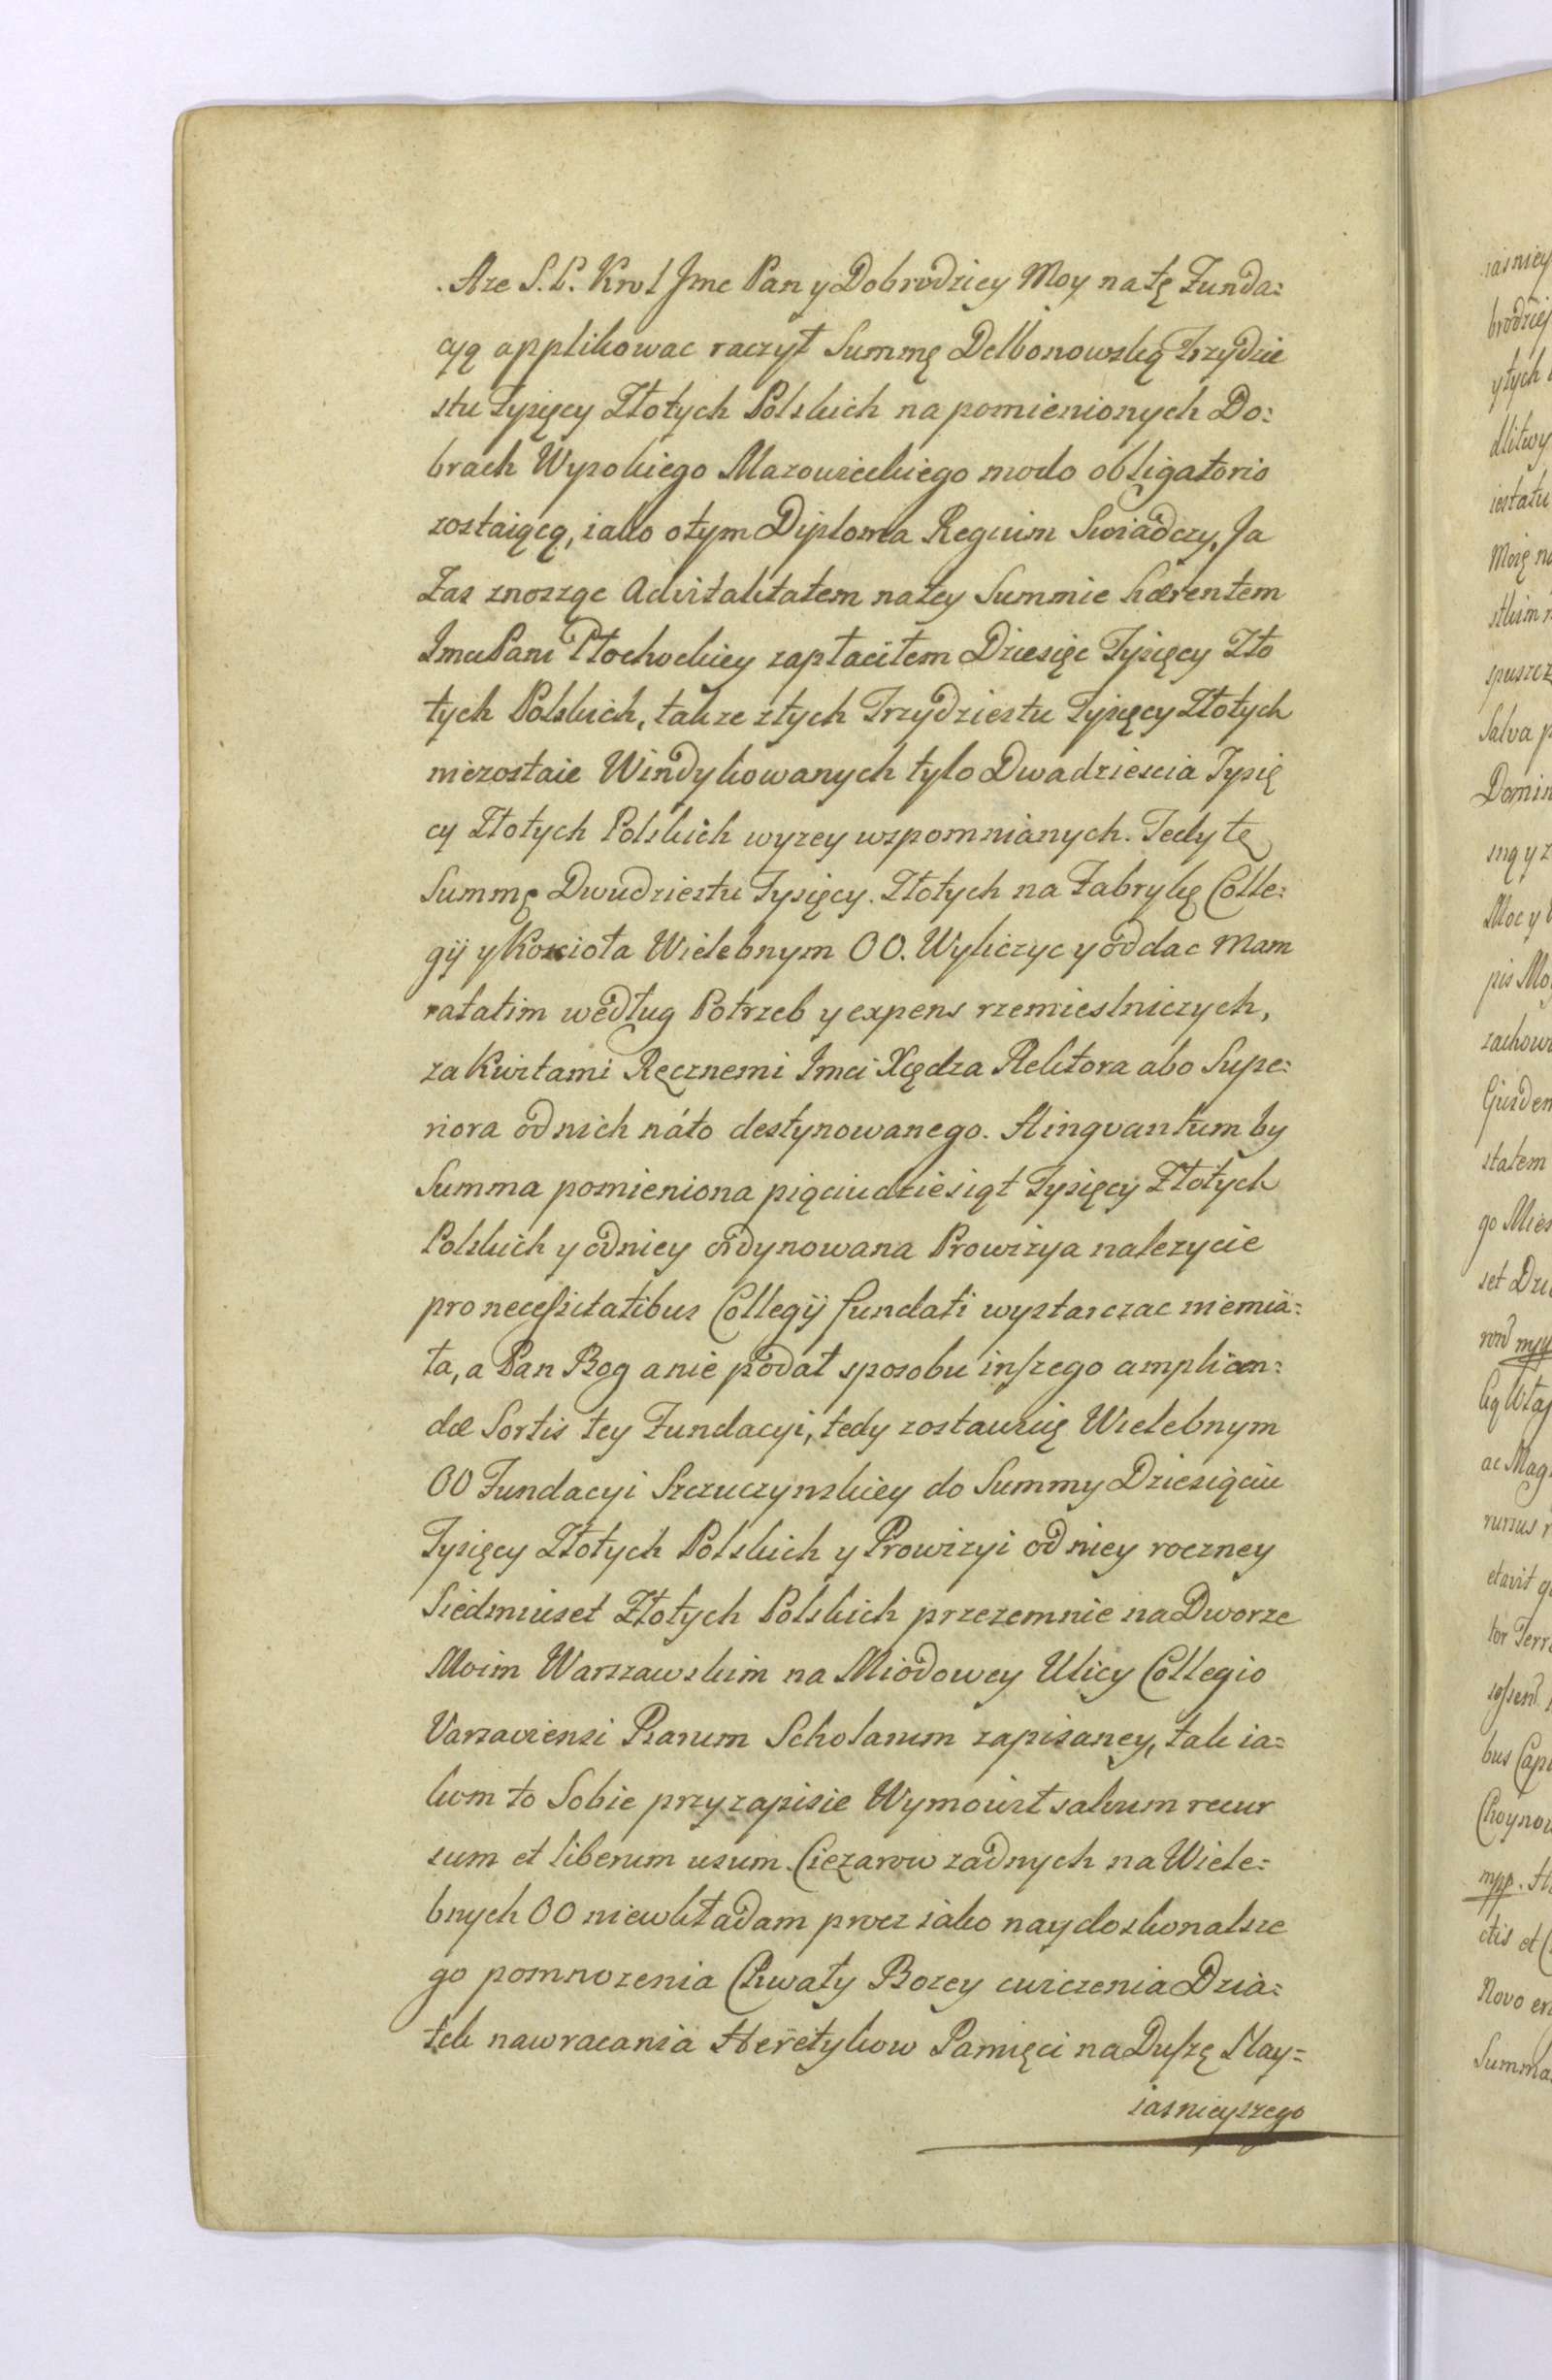 . Aze S. P. Krol Jmc Pan y Dobrodziey Moy na tę Funda:
cyą applikowac raczył Summę Delbonowską Trzydzie
stu Tysięcy Złotych Polskich na pomienionych Do:
brach Wysokiego Mazowieckiego modo obligatorio
zostaiącą, iako otym Diploma Regium Swiadczy, Ja
Zas znosząc Advitalitatem natey Summie hærentem
Jmci Pani Płochockiey zapłaciłem Dziesięc Tysięcy Zło
tych Polskich, takze ztych Trzydziestu Tysięcy Złotych
niezostaie Windykowanych tylo Dwadziescia Tysię
cy Złotych Polskich wyzey wspomnianych. Tedy tę
Summę Dwudziestu Tysięcy. Złotych na Fabrykę Colle:
gÿ y Kosciola Wielebnym OO. Wyliczyc y oddac mam
ratatim według Potrzeb y expens rzemieslniczych,
za Kwitami Ręcznemi Jmci Xiędza Rektora abo Supe:
riora od nich náto destynowanego. Ainquantum by
Summa pomieniona pięciudziesiąt Tysięcy Złotych
Polskich y odniey ordynowana Prowizya nalezycie
pro necessitatibus Collegÿ fundati wystarczac niemia:
ła, a Pan Bog anie podał sposobu inszego amplican:
dæ Sortis tey Fundacyi, tedy zostawuię Wielebnym
OO Fundacyi Szczuczynskiey do Summy Dziesięciu
Tysięcy Złotych Polskich y Prowizyi od niey roczney
Siedmiuset Złotych Polskich przezemnie na Dworze
Moim Warszawskim na Miodowey Ulicy Collegio
Varsaviensi Piarum Scholarum zapisaney, tak ia=
kom to Sobie przy zapisie Wymowił salvum recur
sum et liberum usum. Ciezarow zadnych na Wiele=
bnych OO niewkładam procz iako naydoskonalsze
go pomnozenia Chwały Bozey cwiczenia Dzia=
tek nawracania Heretykow Pamięci na Duszę Nay=
iasnieyszego